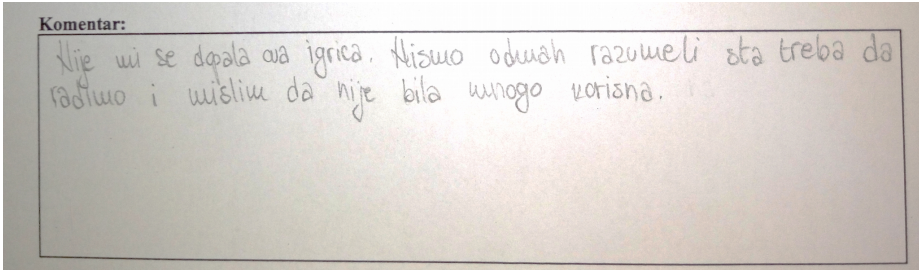 Komentar:
Nije mi se dopala ova igrica. Nismo odmah razumeli sta treba da
radimo i mislim da nije bila mnogo korisna.